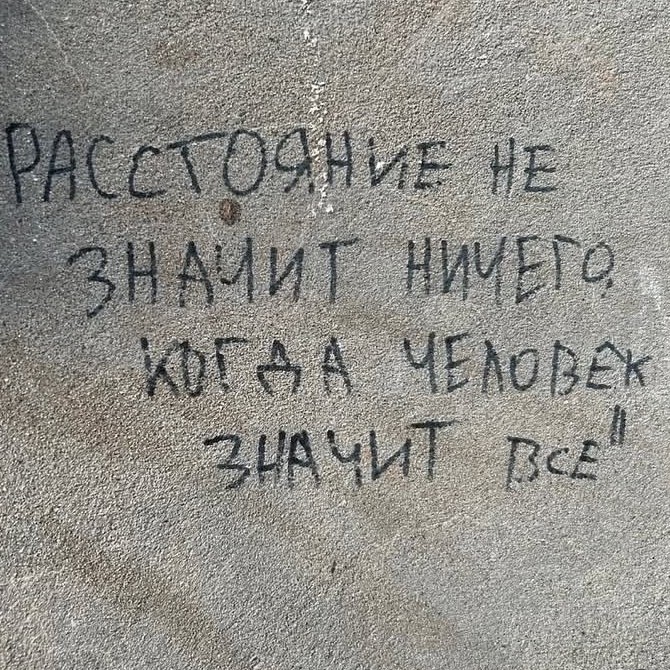 РАССТОЯНИЕ НЕ
ЗНАЧИТ НИЧЕГО.
КОГДА ЧЕЛОВЕК
ЗНАЧИТ ВСЕ"